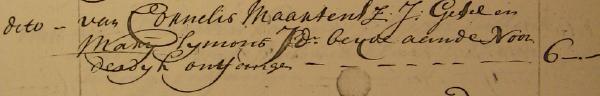 dito - van Cornelis Maartensz J: Gesel en
Marij Symons J.d. beyde aande Noor
derdyk ontfange - - - - - - - 6 - -